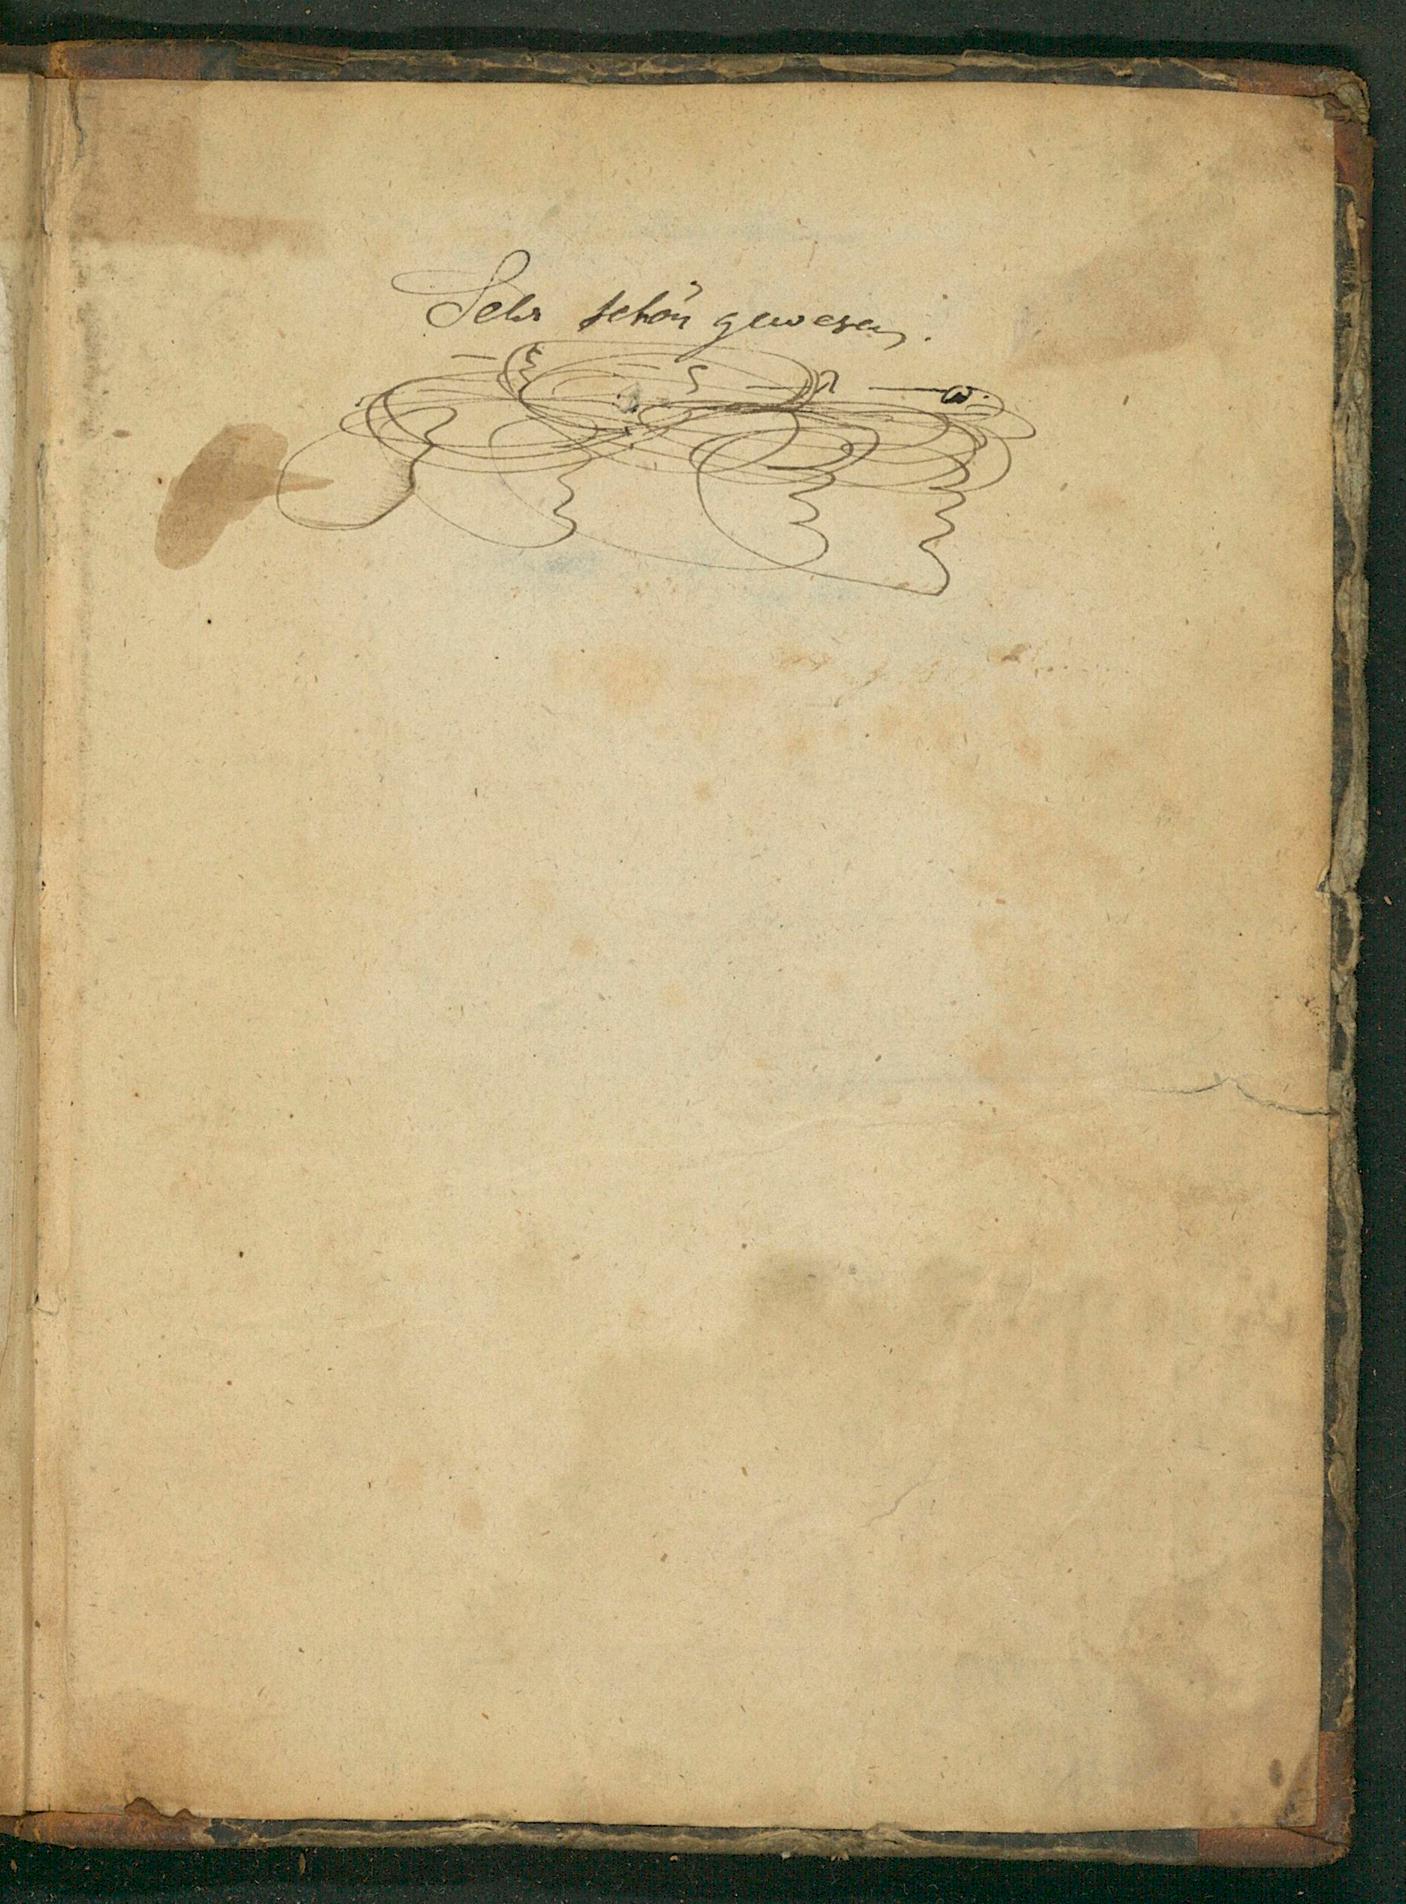 Sehr schön gewesen.